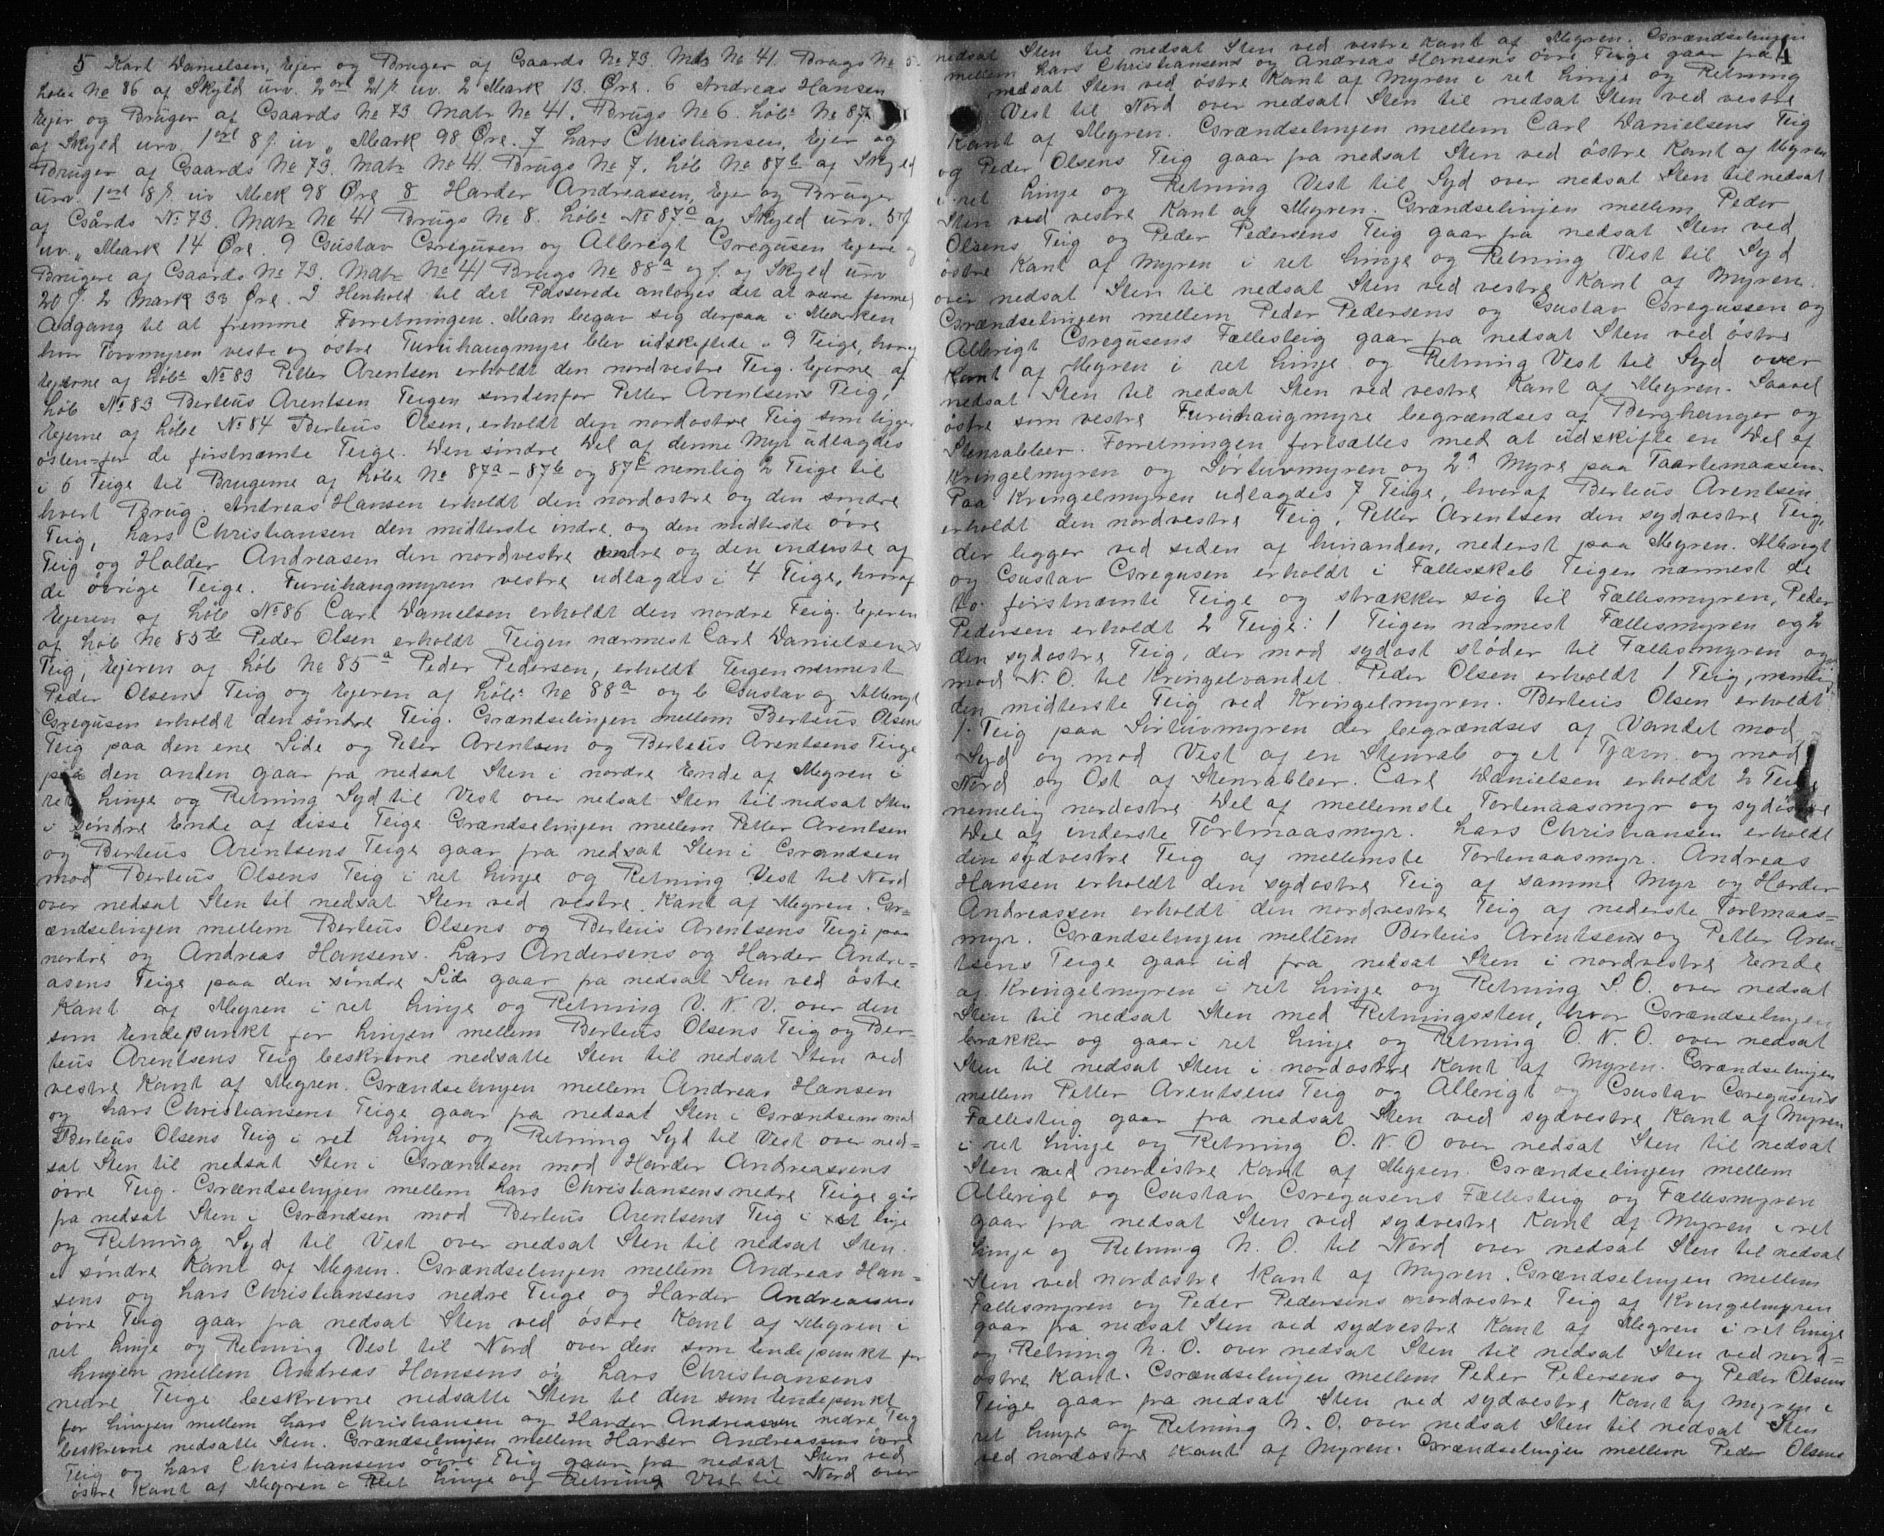 5 Karl Danielsen, Ejer og Bruger af Gaards No 73 Matr No 41. Brugs No 5
Løbe No 86 af Skyld urv. 2 ort 21 f. uv. 2 Mark 13 Øre. 6 Andreas Hansen
Ejer og Bruger af Gaards No 73 Matr No 41. Brugs No 6. Løb: No 87
af Skyld urv. 1 ort 8 f. uv „ Mark 98 Øre. 7 Lars Christiansen, Ejer og
Bruger af Gaards No 73. Matr No 41 Brugs No 7. Løb No 87b af Skyld
urv. 1 ort 8 f. uv Mark 98 Øre 8 Harder Andreassen, Ejer og Bruger
af Gårds No 73. Matr No 41 Brugs No 8. Løb: No 87a af Skyld urv. 5 f
uv. „ Mark 14 Øre. 9 Gustav Gregusen og Albrigt Gregusen Ejere og
Brugere af Gaards No 73. Matr No 41 Brugs No 88a og f. af Skyld urv
20 f. 2 Mark 33 Øre. I Henhold til det Passerede antoges det at være formel
Adgang til at fremme Forretningen. Man begav sig derpaa i Marken
hvor Torvmyren vestre og østre Furuhaugmyre blev udskiftede i 9 Teige, hvoraf
Ejerne af Løb: No 83 Petter Arentsen erholdt den nordvestre Teig. Ejerne af
Løb No 83 Berteus Arentsen Teigen søndenfor Petter Arentsens Teig,
Ejerne af Løbe No 84 Berteus Olsen, erholdt den nordostre Teig som ligger
østen=for de førstnæmte Teige. Den søndre Del af denne Myr udlagdes
i 6 Teige til Brugerne af Løbe No 87a - 87b og 87c nemlig 2 Teige til
hvert Brug. Andreas Hansen erholdt den nordostre og den søndre
Teig, Lars Christiansen den midterste indre og den midterste øvre
Teig og Halder Andreasen den nordvestre indre og den inderste af
de øvrige Teige. Furuhaugmyren vestre udlagdes i 4 Teige, hvoraf
Ejeren af Løb No 86 Carl Danielsen erholdt den nordre Teig. Ejeren
af Løb No 85b Peder Olsen erholdt Teigen nærmest Carl Danielsens
Teig, Ejeren af Løb No 85a Peder Pedersen, erholdt Teigen nærmest
Peder Olsens Teig og Ejeren af Løb: No 88a og b Gustav og Albrigt
Gregusen erholdt den søndre Teig. Grændselinjen mellem Berteus Olsens
Teig paa den ene Side og Peter Arentsen og Berteus Arentsens Teige
paa den anden gaar fra nedsat Sten i nordre Ende af Myren i
ret Linje og Retning Syd til Vest over nedsat Sten til nedsat Sten
i søndre Ende af disse Teige. Grændselinjen mellem Petter Arentsen
og Berteus Arentsens Teige gaar fra nedsat Sten i Grændsen
mod Berteus Olsens Teig i ret Linje og Retning Vest til Nord
over nedsat Sten til nedsat Sten ved vestre Kant af Myren. Gr=
ændselinjen mellem Berteus Olsens og Berteus Arentsens Teige paa
nordre og Andreas Hansens. Lars Andersens og Harder Andre=
asens Teige paa den søndre Side gaar fra nedsat Sten ved østre
Kant af Myren i ret Linje og Retning V. N. V. over den
som Endepunkt for Linjen mellem Berteus Olsens Teig og Ber=
teus Arentsens Teig beskrevne nedsatte Sten til nedsat Sten ved
vestre Kant af Myren. Grændselinjen mellem Andreas Hansen
og Lars Christiansens Teige gaar fra nedsat Sten i Grændsen mod
Berteus Olsens Teig i ret Linje og Retning Syd til Vest over ned=
sat Sten til nedsat Sten i Grændsen mod Harder Andreasens
øvre Teig. Grændselinjen mellem Lars Christiansens nedre Teige går
fra nedsat Sten i Grændsen mod Berteus Arentsens Teig i ret Linje
og Retning Syd til Vest over nedsat Sten til nedsat Sten
i søndre Kant af Myren. Grændselinjen mellem Andreas Han=
sens og Lars Christiansens nedre Teige og Harder Andreasens
øvre Teig gaar fra nedsat Sten ved østre Kant af Myren i
ret Linje og Retning Vest til Nord over den som Endepunkt for
Linjen mellem Andreas Hansens og Lars Christiansens
nedre Teige beskrevne nedsatte Sten til den som Endepunkt
for Linjen mellem Lars Christiansen og Harder Andreasen nedre Teig
beskrevne nedsatte Sten. Grændselinjen mellem Harder Andreasens øvre
Teig og Lars Christiansens øvre Teig gaar fra nedsat Sten ved
østre Kant af Myren i Ret Linje og Retning Vest til Nord over
4
nedsat Sten til nedsat Sten ved vestre Kant af Myren. Grændselinjen
mellem Lars Christiansens og Andreas Hansens øvre Teige gaar fra
nedsat Sten ved østre Kant af Myren i ret Linje og Retning
Vest til Nord over nedsat Sten til nedsat Sten ved vestre
Kant af Myren. Grændselinjen mellem Carl Danielsens Teig
og Peder Olsens Teig gaar fra nedsat Sten ved østre Kant af Myren
i ret Linje og Retning Vest til Syd over nedsat Sten til nedsat
Sten ved vestre Kant af Myren. Grændselinjen mellem Peder
Olsens Teig og Peder Pedersens Teig gaar fra nedsat Sten ved
østre Kant af Myren i ret Linje og Retning Vest til Syd
over nedsat Sten til nedsat Sten ved vestre Kant af Myren.
Grændselinjen mellem Peder Pedersens og Gustav Gregussen og
Albrigt Gregusens Fællesteig gaar fra nedsat Sten ved østre
Kant af Myren i ret Linje og Retning Vest til Syd over
nedsat Sten til nedsat Sten ved vestre Kant af Myren. Saavel
østre som vestre Furuhaugmyre begrændses af Berghauger og
Stenrabber. Forretningen fortsattes med at udskifte en Del af
Kringelmyren og Sørtuvmyren og 2de Myre paa Taartemaasen.
Paa Kringelmyren udlagdes 7 Teige, hvoraf Berteus Arentsen.
erholdt den nordvestre Teig, Petter Arentsen den sydvestre Teig,
der ligger ved siden af hinanden, nederst paa Myren. Albrigt
og Gustav Gregusen erholdt i Fællesskab Teigen nærmest de
to førstnæmte Teige og strækker sig til Fællesmyren, Peder
Pedersen erholdt 2 Teige: 1 Teigen nærmest Fællesmyren og 2
den sydostre Teig, der mod sydost støder til Fællesmyren og
mod N. O. til Kringelvandet. Peder Olsen erholdt 1 Teig, nemlig
den midterste Teig ved Kringelmyren. Berteus Olsen erholdt
1. Teig paa Sørtuvmyren der begrændses af Vandet mod
Syd og mod Vest af en Stenrab og et Tjærn og mod
Nord og Ost af Stenrabber. Carl Danielsen erholdt 2 Teige
nemelig nordostre Del af mellemste Tortenaasmyr og sydostre
Del af inderste Tortmaasmyr. Lars Christiansen erholdt
den sydvestre Teig af mellemste Tortenaasmyr. Andreas
Hansen erholdt den sydostre Teig af samme Myr og Harder
Andreassen erholdt den nordvestre Teig af nederste Tortmaas=
myr. Grændselinjen mellem Berteus Arentsens og Petter Aren=
tsens Teige gaar ud fra nedsat Sten i nordvestre Ende
af Kringelmyren i ret Linje og Retning S. O. over nedsat
Sten til nedsat Sten med Retningssten, hvor Grændselinjen
brækker og gaar i ret Linje og Retning O. N. O. over nedsat
Sten til nedsat Sten i nordostre Kant af Myren. Grændselinjen
mellem Petter Arentsens Teig og Albrigt og Gustav Gregusens
Fællesteig gaar fra nedsat Sten ved sydvestre Kant af Myren
i ret Linje og Retning O. N. O over nedsat Sten til nedsat
Sten ved nordøstre Kant af Myren. Grændselinjen mellem
Albrigt og Gustav Gregusens Fællesteig og Fællesmyren
gaar fra nedsat Sten ved sydvestre Kant af Myren i ret
Linje og Retning N. O. til Nord over nedsat Sten til nedsat
Sten ved nordostre Kant af Myren. Grændselinjen mellem
Fællesmyren og Peder Pedersens nordvestre Teig af Kringelmyren
gaar fra nedsat Sten ved sydvestre Kant af Myren i ret Linje
og Retning N. O. over nedsat Sten til nedsat Sten ved nord=
østre Kant. Grændselinjen mellem Peder Pedersens og Peder Olsens
Teige gaar fra nedsat Sten ved sydvestre Kant af Myren i
ret Linje og Retning N. O. over nedsat Sten til nedsat Sten
ved nordostre Kant af Myren. Grændselinjen mellem Peder Olsens